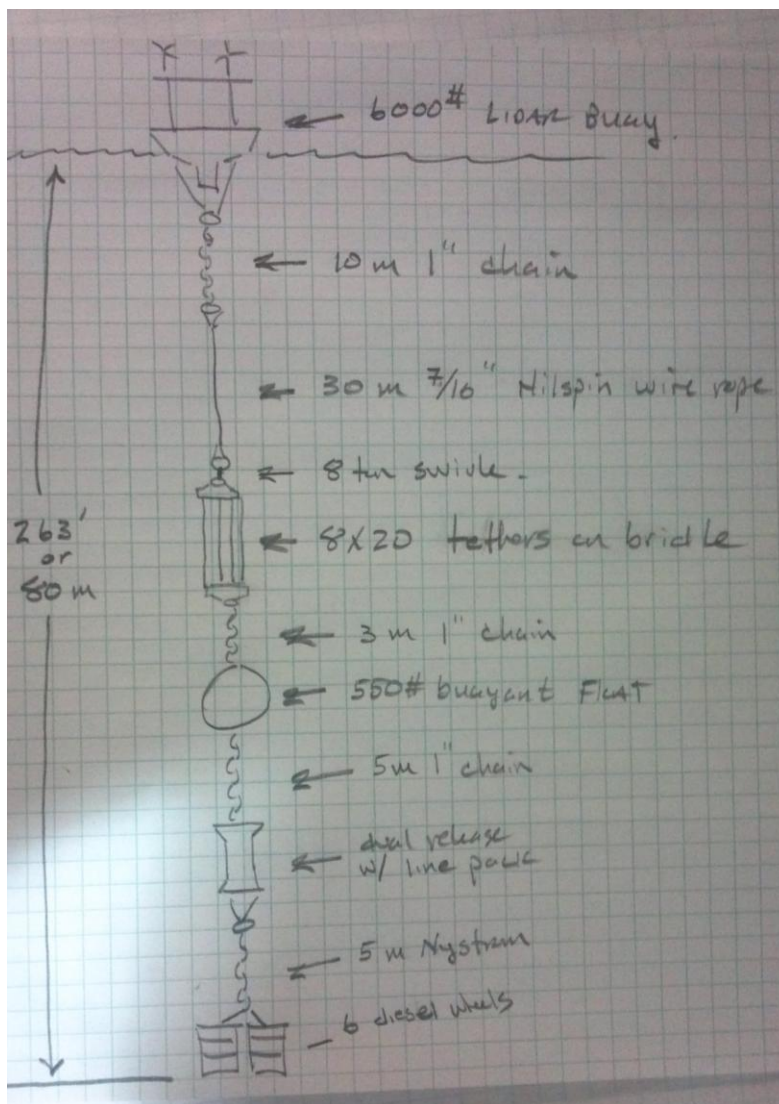 6000# LIDAR Buay.
10 m 1" chain
30 m 7/16" Nilspin wire rope
8 ton swivle.
263'
or
80 m
8X20 tethers on bridle
3 m 1" chain
550# buayant Float
5m 1" chain
dual release
w/ line pack
5 m Nystrom
6 diesel wheels